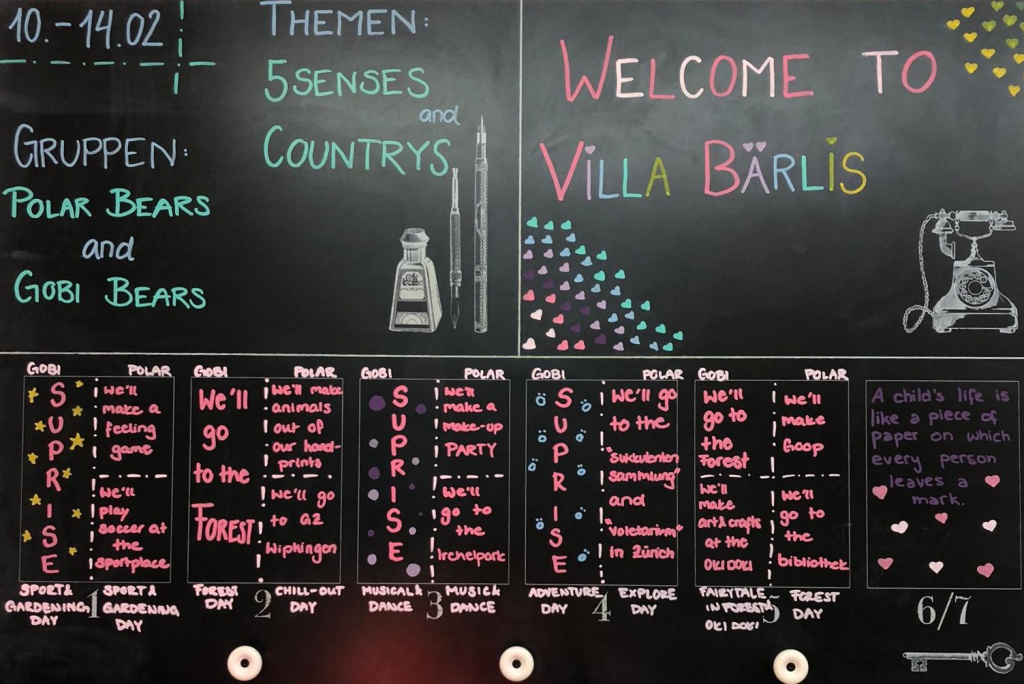 10.-14.02
THEMEN:
5SENSES
and
COUNTRYS
GRUPPEN:
POLAR BEARS
and
GOBI BEARS
WELCOME TO
VILLA BÄRLIS
GOBI
POLAR
SUPRISE
we'll
make a
feeling
game
we'll
play
soccer at
the
sportplace
SPORT&
GARDENING
DAY
1
SPORT&
GARDENING
DAY
GOBI
POLAR
We'll
go
to the
FOREST
we'll make
animals
out of
our hand-
prints
we'll go
to GZ
Wipkingen
FOREST
DAY
2
CHILL-OUT
DAY
GOBI
POLAR
SUPRISE
we'll
make a
make-up
PARTY
we'll
go to
the
Irchelpark
MUSICAL&
DANCE
3
MUSIC&
DANCE
GOBI
POLAR
SUPRISE
we'll go
to the
"sukkulenten
sammlung"
and
"voletarium"
in Zürich
ADVENTURE
DAY
4
EXPLORE
DAY
GOBI
POLAR
we'll
go to
the
Forest
we'll
make
art&crafts
at the
OKI DOKI
we'll
make
Goop
we'll
go to
the
bibliothek
FAIRYTALE
IN FOREST&
OKI DOKI
5
FOREST
DAY
A child's life is
like a piece of
paper on which
every person
leaves a
mark.
6/7